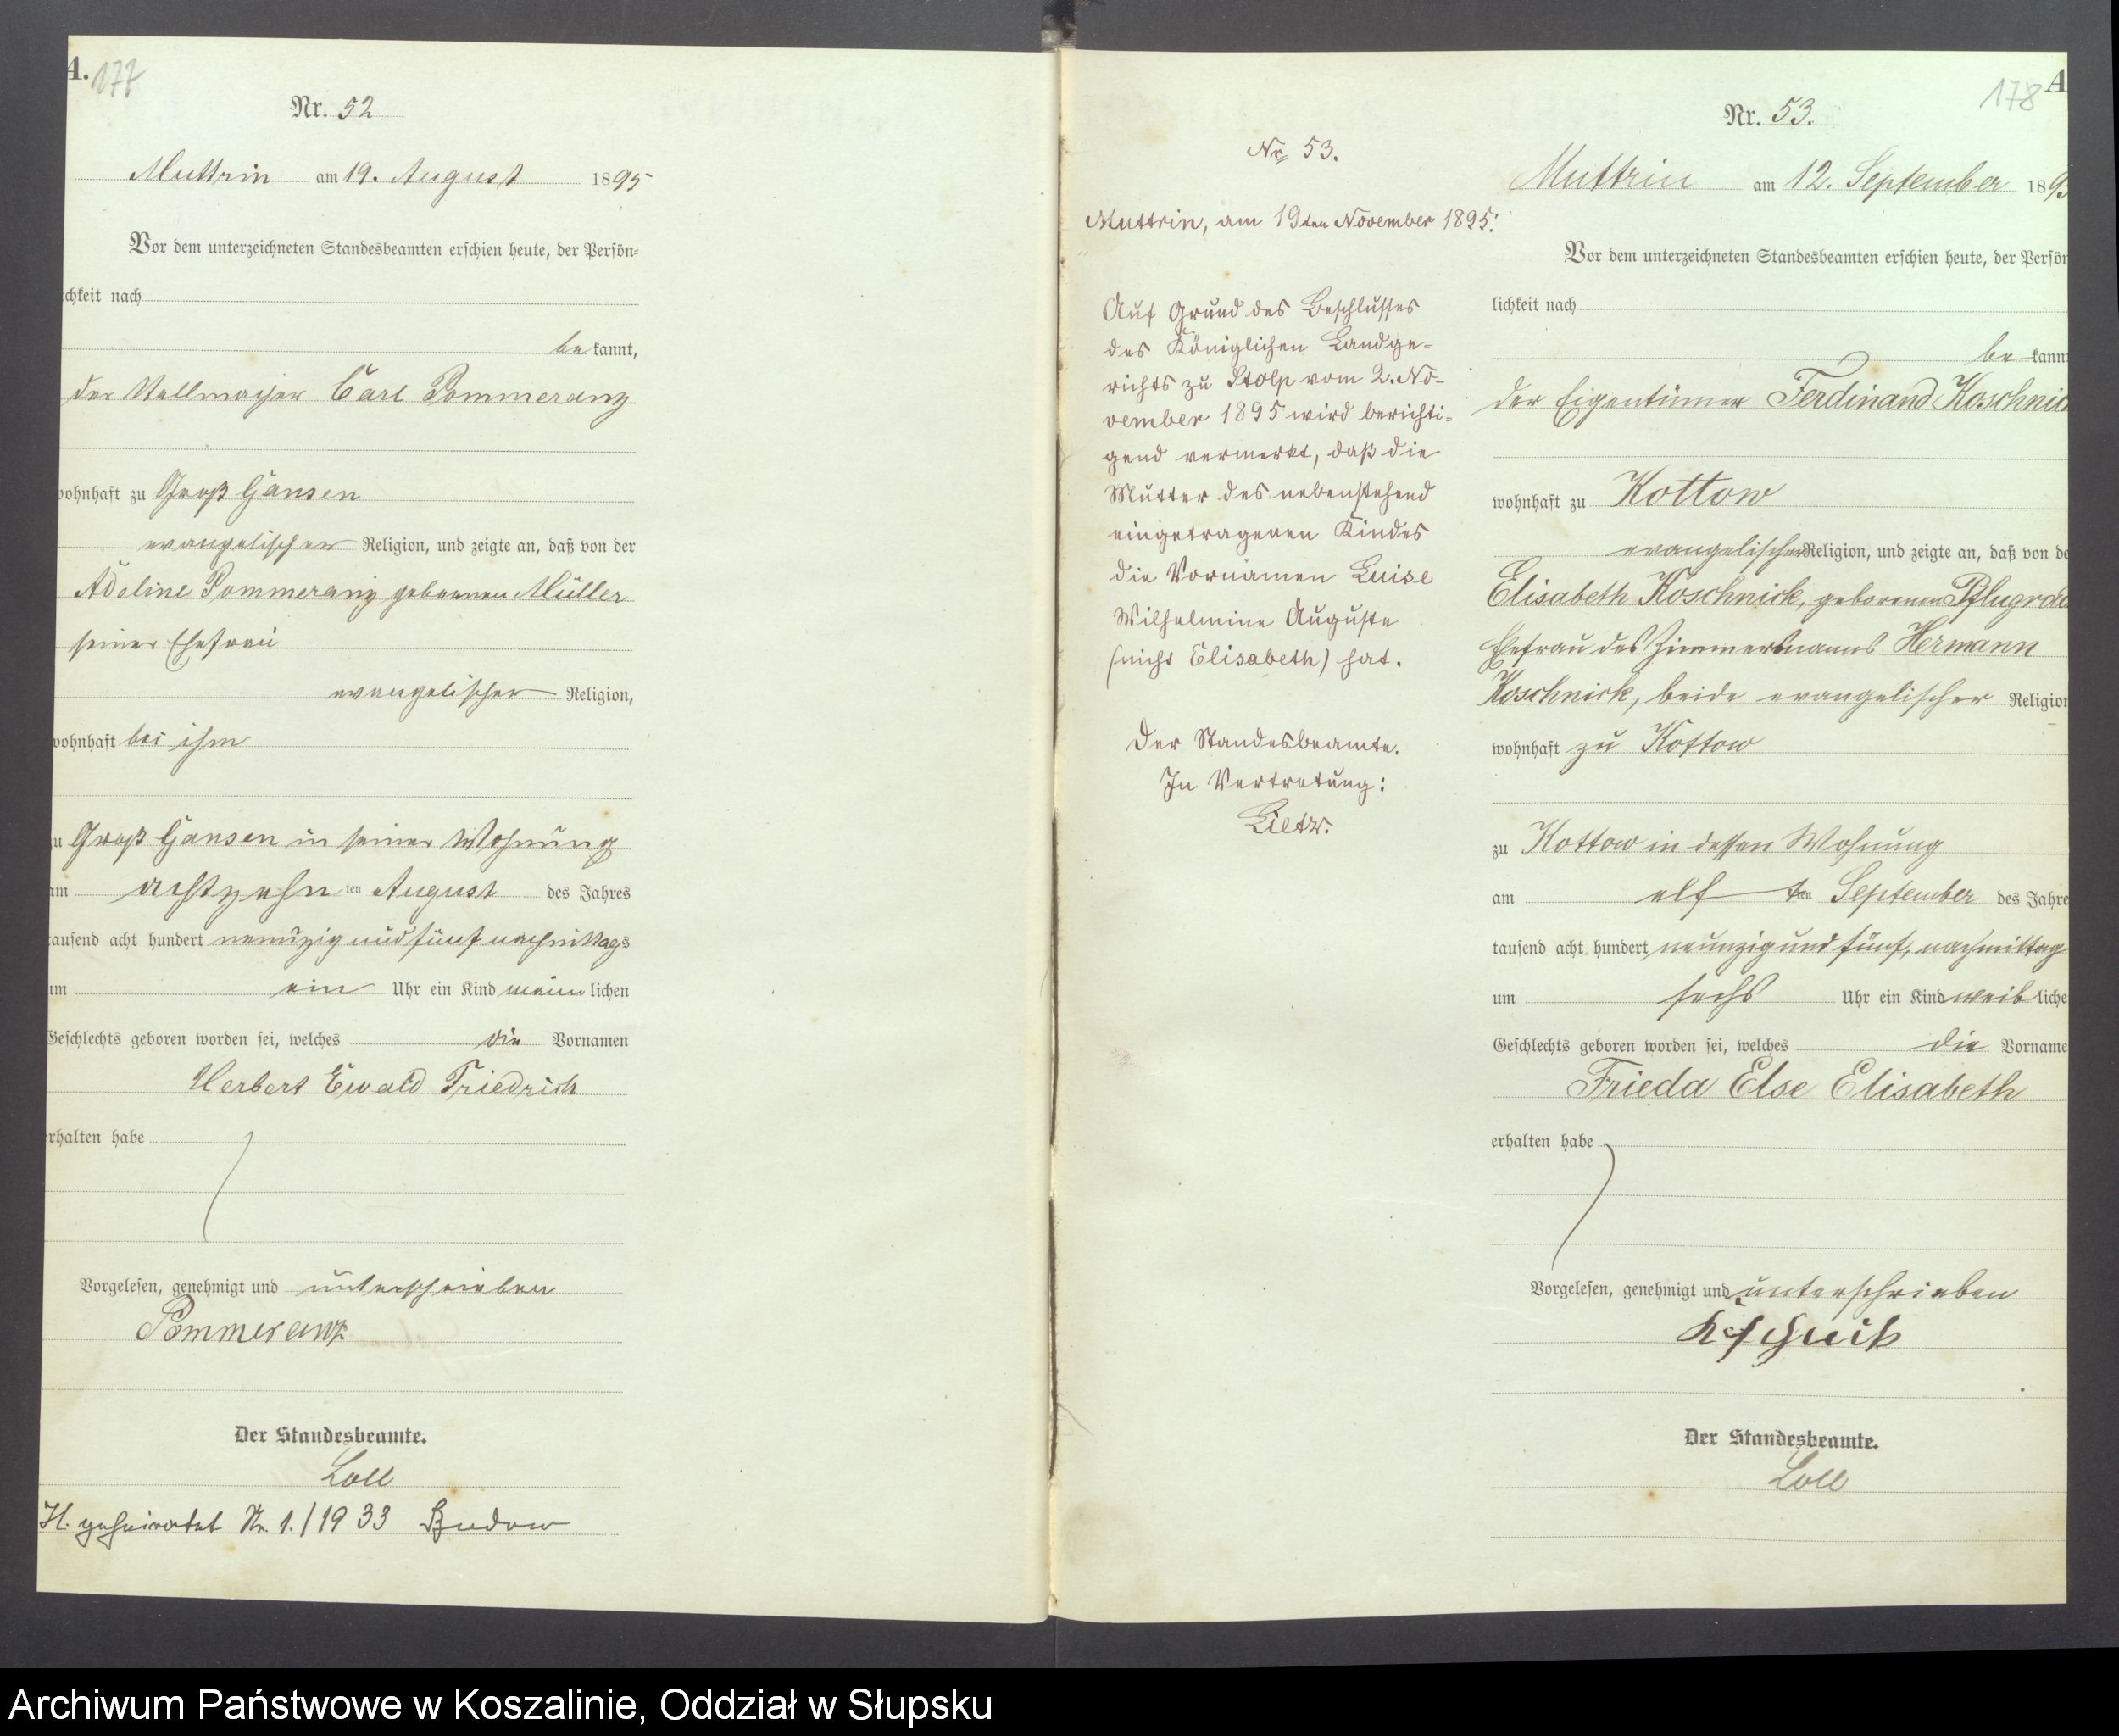 A.
177
Nr. 52
Muttrin am 19. August 1895
Vor dem unterzeichneten Standesbeamten erschien heute, der Persön=
ichkeit nach
be kannt,
der Stellmacher Carl Pommeranz
wohnhaft zu Groß Gansen
evangelischer Religion, und zeigte an, daß von der
Adeline Pommeranz geborenen Müller
seiner Ehefrau
evangelischer Religion,
wohnhaft bei ihm
zu Groß Gansen in seiner Wohnung
am achtzehn ten August des Jahres
tausend acht hundert neunzig und fünf nachmittags
um ein Uhr ein Kind männlichen
Geschlechts geboren worden sei, welches die Vornamen
Herbert Ewald Friedrich
erhalten habe
Vorgelesen, genehmigt und unterschrieben
Pommeranz
Der Standesbeamte.
Loll
H. geheiratet Nr. 1./1933 Budow
Nr. 53.
Muttrin, am 19ten November 1895.
Auf Grund des Beschlusses
des Königlichen Landge=
richts zu Stolp vom 2. No=
vember 1895 wird berichti=
gend vermerkt, daß die
Mutter des nebenstehend
eingetragenen Kindes
die Vornamen Luise
Wilhelmine Auguste
(nicht Elisabeth) hat.
Der Standesbeamte.
In Vertretung:
178
A
Nr. 53.
Muttrin am 12. September 189
Vor dem unterzeichneten Standesbeamten erschien heute, der Persön
lichkeit nach
be kann
der Eigentümer Ferdinand Koschnic
wohnhaft zu Kottow
evangelischer Religion, und zeigte an, daß von de
Elisabeth Koschnick, geborenen Pflugrad
Ehefrau des Zimmermanns Hermann
Koschnick, beide evangelischer Religion
wohnhaft zu Kottow
zu Kottow in dessen Wohnung
am elf ten September des Jahre
tausend acht hundert neunzig und fünf, nachmittag
um sechs Uhr ein Kind weib liche
Geschlechts geboren worden sei, welches die Vorname
Frieda Else Elisabeth
erhalten habe
Vorgelesen, genehmigt und unterschrieben
Koschnick
Der Standesbeamte.
Loll
Archiwum Państwowe w Koszalinie, Oddział w Słupsku